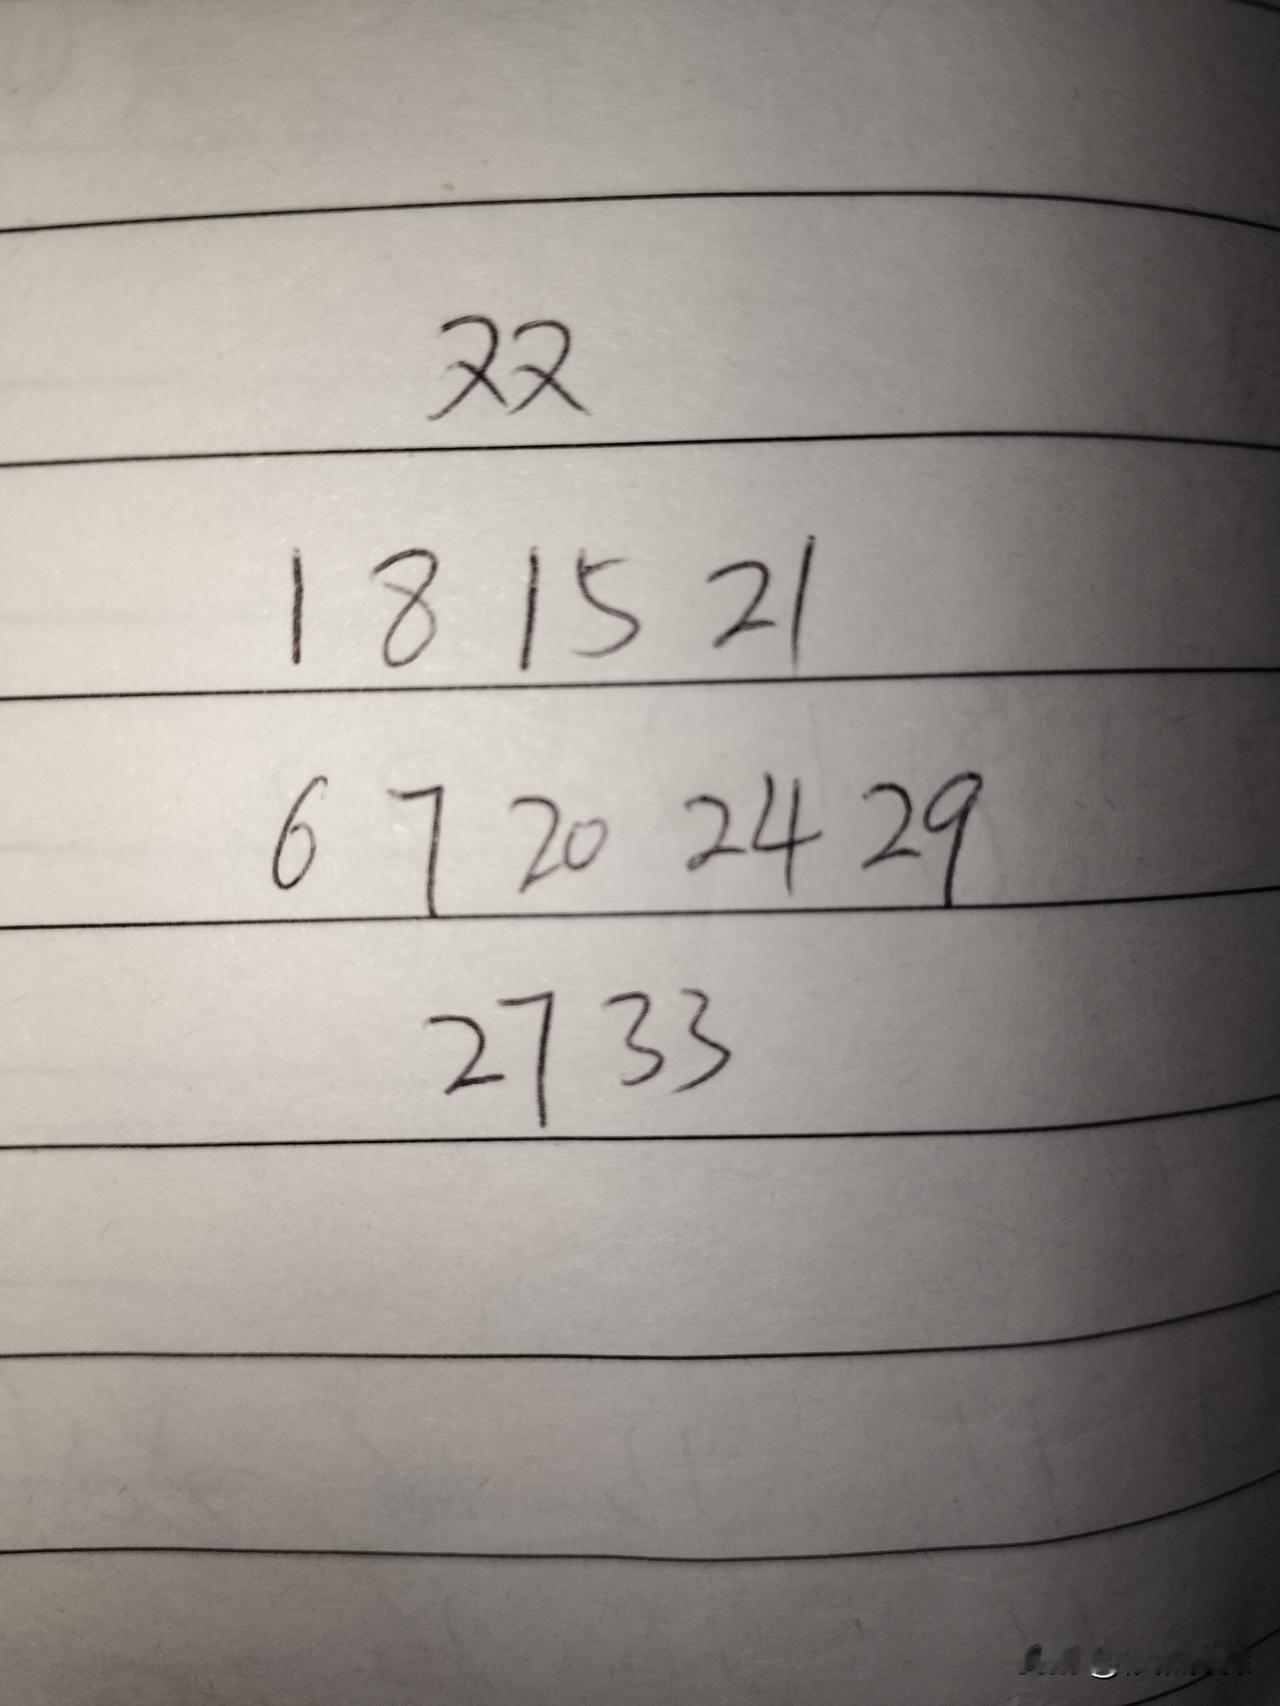 22
1 8 15 21
6 7 20 24 29
27 33